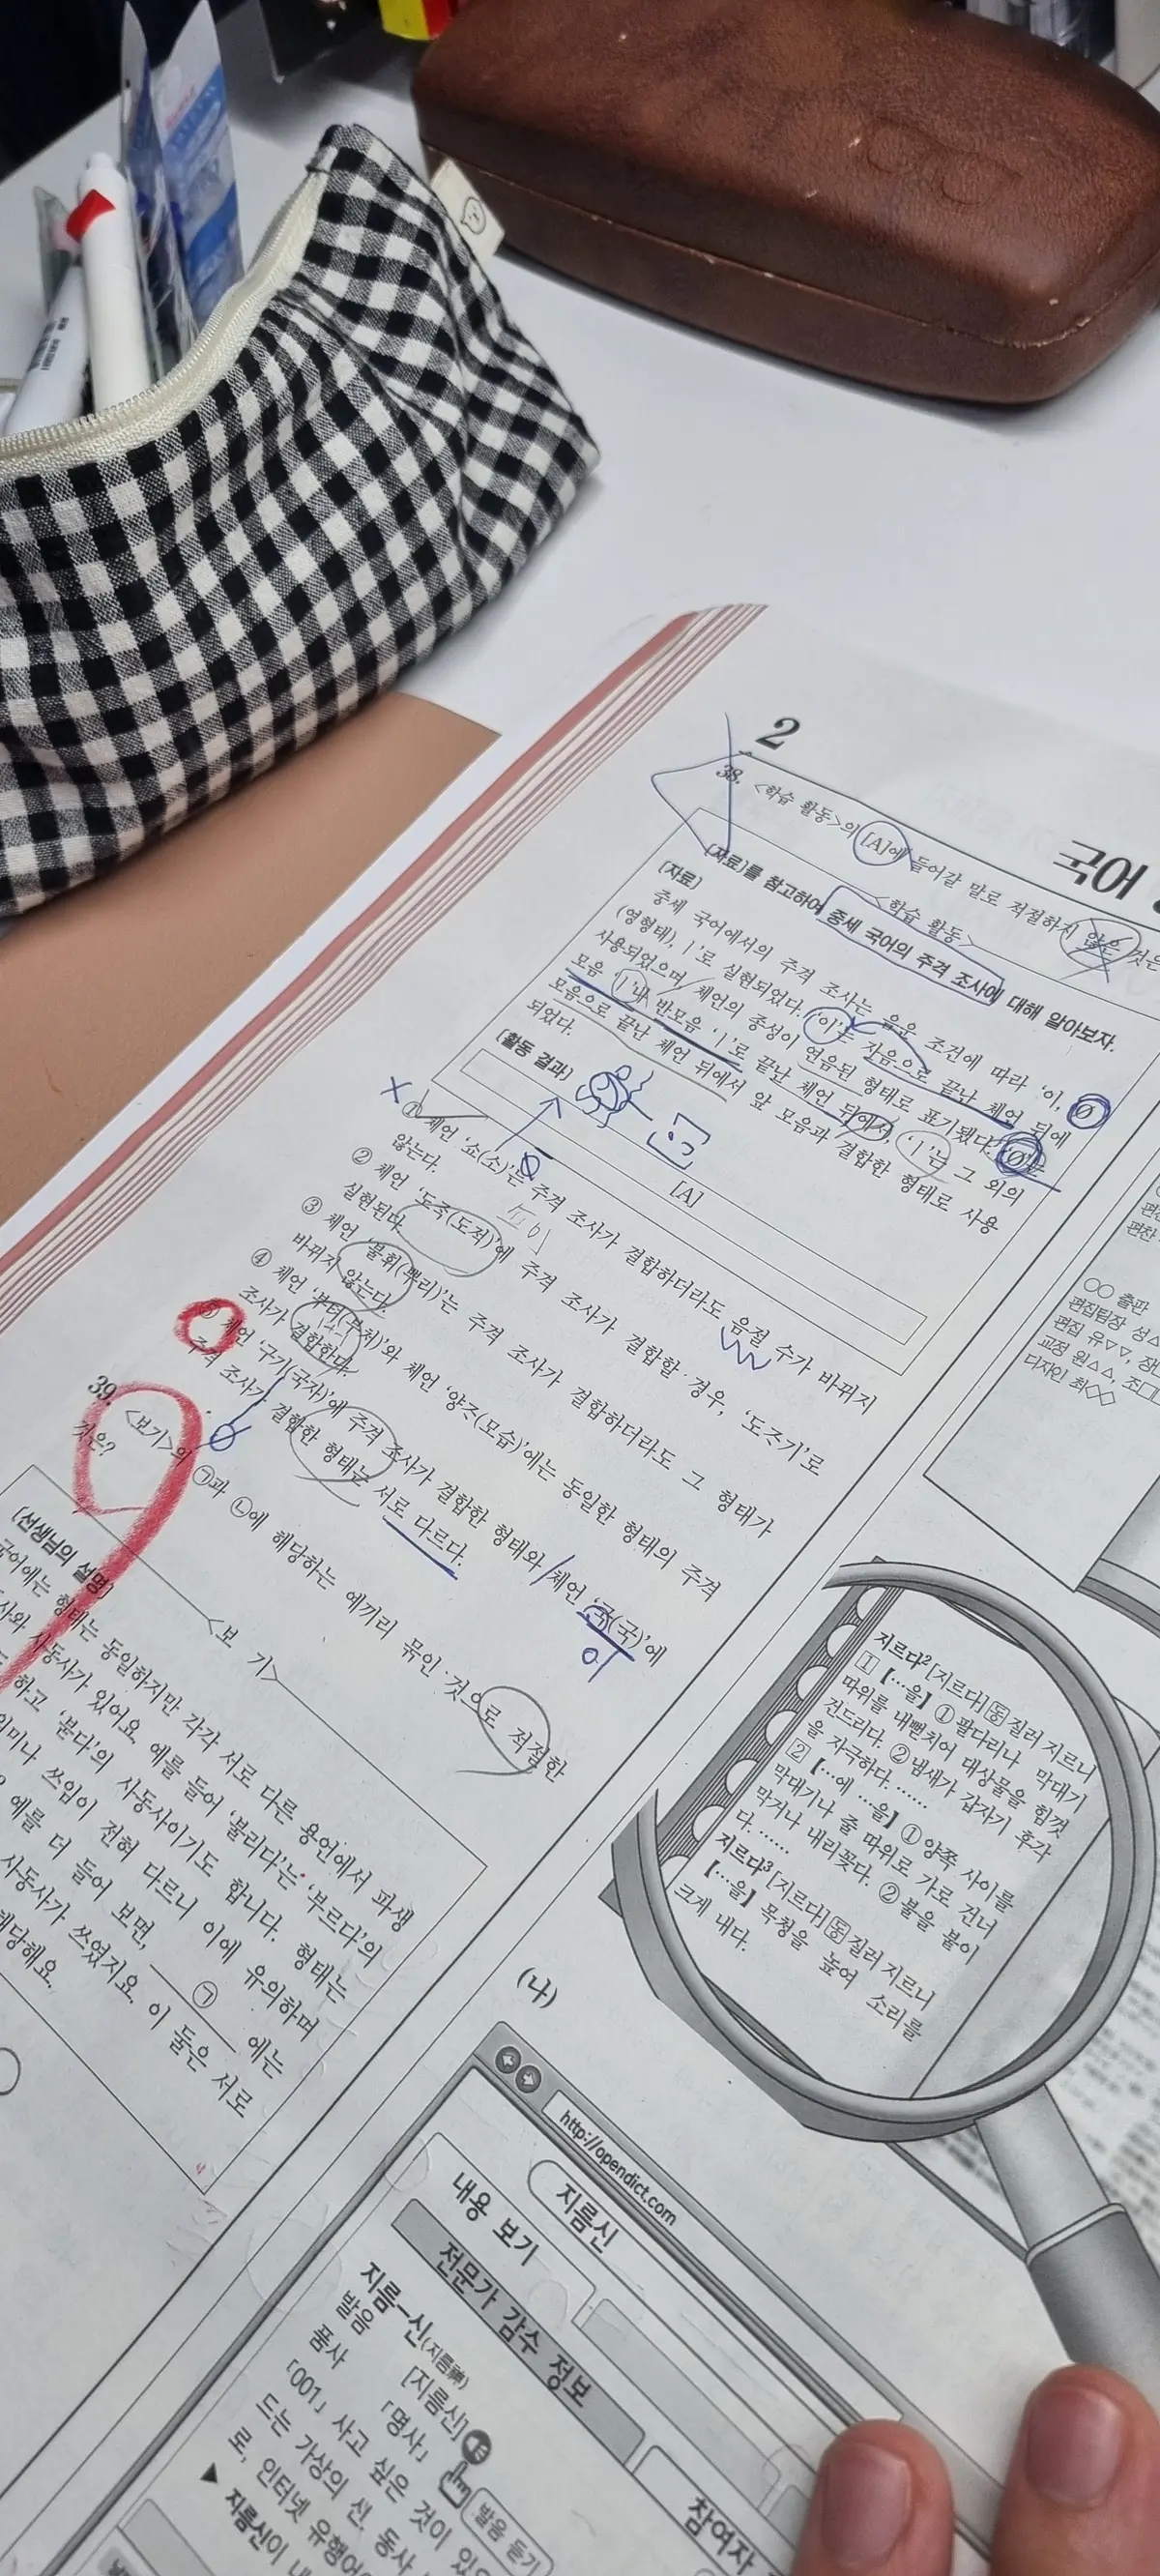 2
국어
38. <학습 활동>의 [A]에 들어갈 말로 적절하지 않은 것은
<학습 활동>
[자료]를 참고하여 중세 국어의 주격 조사에 대해 알아보자.
[자료]
중세 국어에서의 주격 조사는 음운 조건에 따라 '이, ∅
(영형태), ㅣ'로 실현되었다. '이'는 자음으로 끝난 체언 뒤에
사용되었으며 체언의 종성이 연음된 형태로 표기됐다. '∅'는
모음 'ㅣ'나 반모음 'ㅣ'로 끝난 체언 뒤에서, 'ㅣ'는 그 외의
모음으로 끝난 체언 뒤에서 앞 모음과 결합한 형태로 사용
되었다.
[활동 결과]
[A]
① 체언 '쇼(소)'는 주격 조사가 결합하더라도 음절 수가 바뀌지
않는다.
② 체언 '도ᄌᆨ(도적)'에 주격 조사가 결합할 경우, '도ᄌᆞ기'로
실현된다.
③ 체언 '불휘(뿌리)'는 주격 조사가 결합하더라도 그 형태가
바뀌지 않는다.
④ 체언 '부텨(부처)'와 체언 '양ᄌᆞ(모습)'에는 동일한 형태의 주격
조사가 결합한다.
⑤ 체언 '구기(국자)'에 주격 조사가 결합한 형태와 체언 '국(국)'에
주격 조사가 결합한 형태는 서로 다르다.
∅
이
39. <보기>의 ㉠과 ㉡에 해당하는 예끼리 묶인 것으로 적절한
것은?
<보 기>
[선생님의 설명]
국어에는 형태는 동일하지만 각각 서로 다른 용언에서 파생
사와 사동사가 있어요. 예를 들어 '불리다'는 '부르다'의
하고 '분다'의 사동사이기도 합니다. 형태는
의미나 쓰임이 전혀 다르니 이에 유의하며
예를 더 들어 보면, ㉠ 에는
사동사가 쓰였지요. 이 둘은 서로
해당해요.
○○ 출판
편집팀장 성
편집 유▽▽, 장
교정 원△△, 조
디자인 최◇◇
지르다² [지르다] 동 질러 지르니
1 【…을】 ① 팔다리나 막대기
따위를 내뻗치어 대상물을 힘껏
건드리다. ② 냄새가 갑자기 후각
을 자극하다. ……
2 【…에 …을】 ① 양쪽 사이를
막대기나 줄 따위로 가로 건너
막거나 내리꽂다. ② 불을 붙이
다. ……
지르다³ [지르다] 동 질러 지르니
【…을】 목청을 높여 소리를
크게 내다.
(나)
http://opendict.com
지름신
내용 보기
전문가 감수 정보
참여자
지름-신(지름神)
발음 [지름신] 발음 듣기
품사 「명사」
「001」 사고 싶은 것이 있
드는 가상의 신. 동사
로, 인터넷 유행어
▶ 지름신이 내